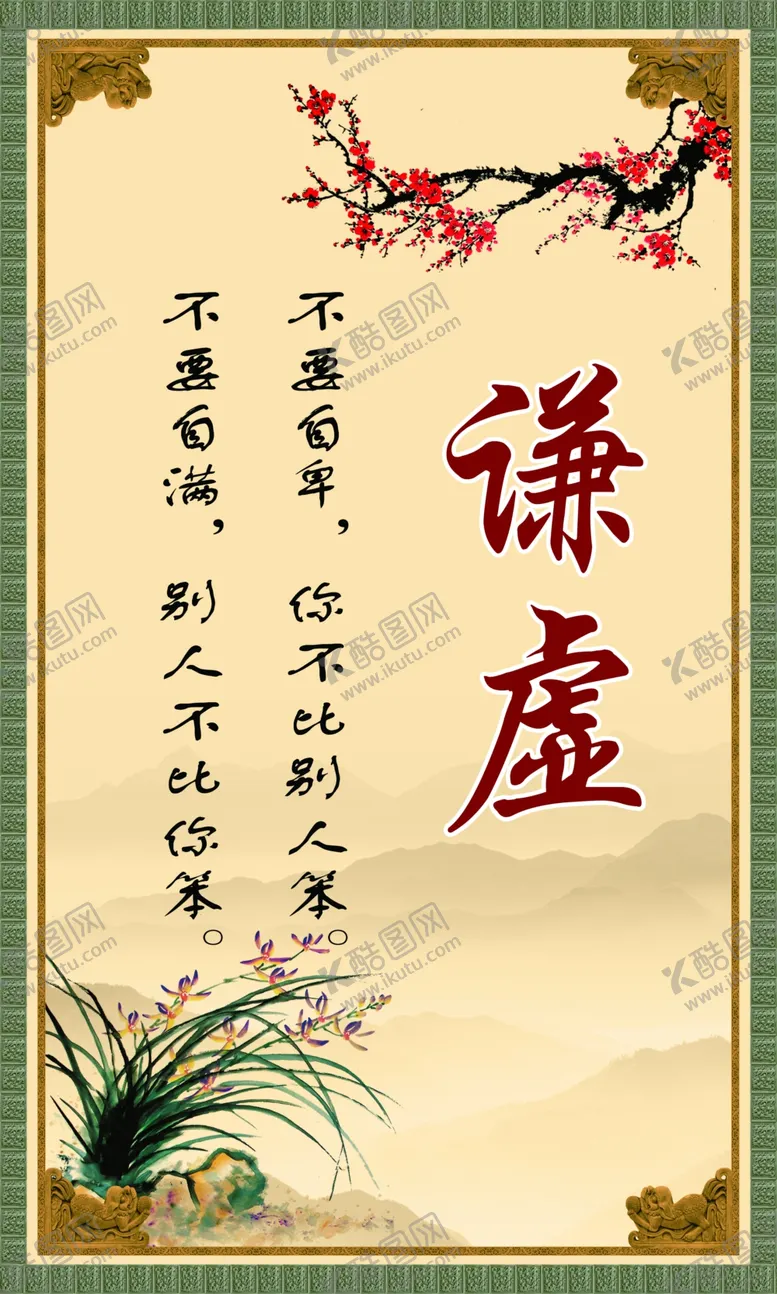 谦虚
不要自卑，你不比别人笨。
不要自满，别人不比你笨。
酷图网
www.ikutu.com